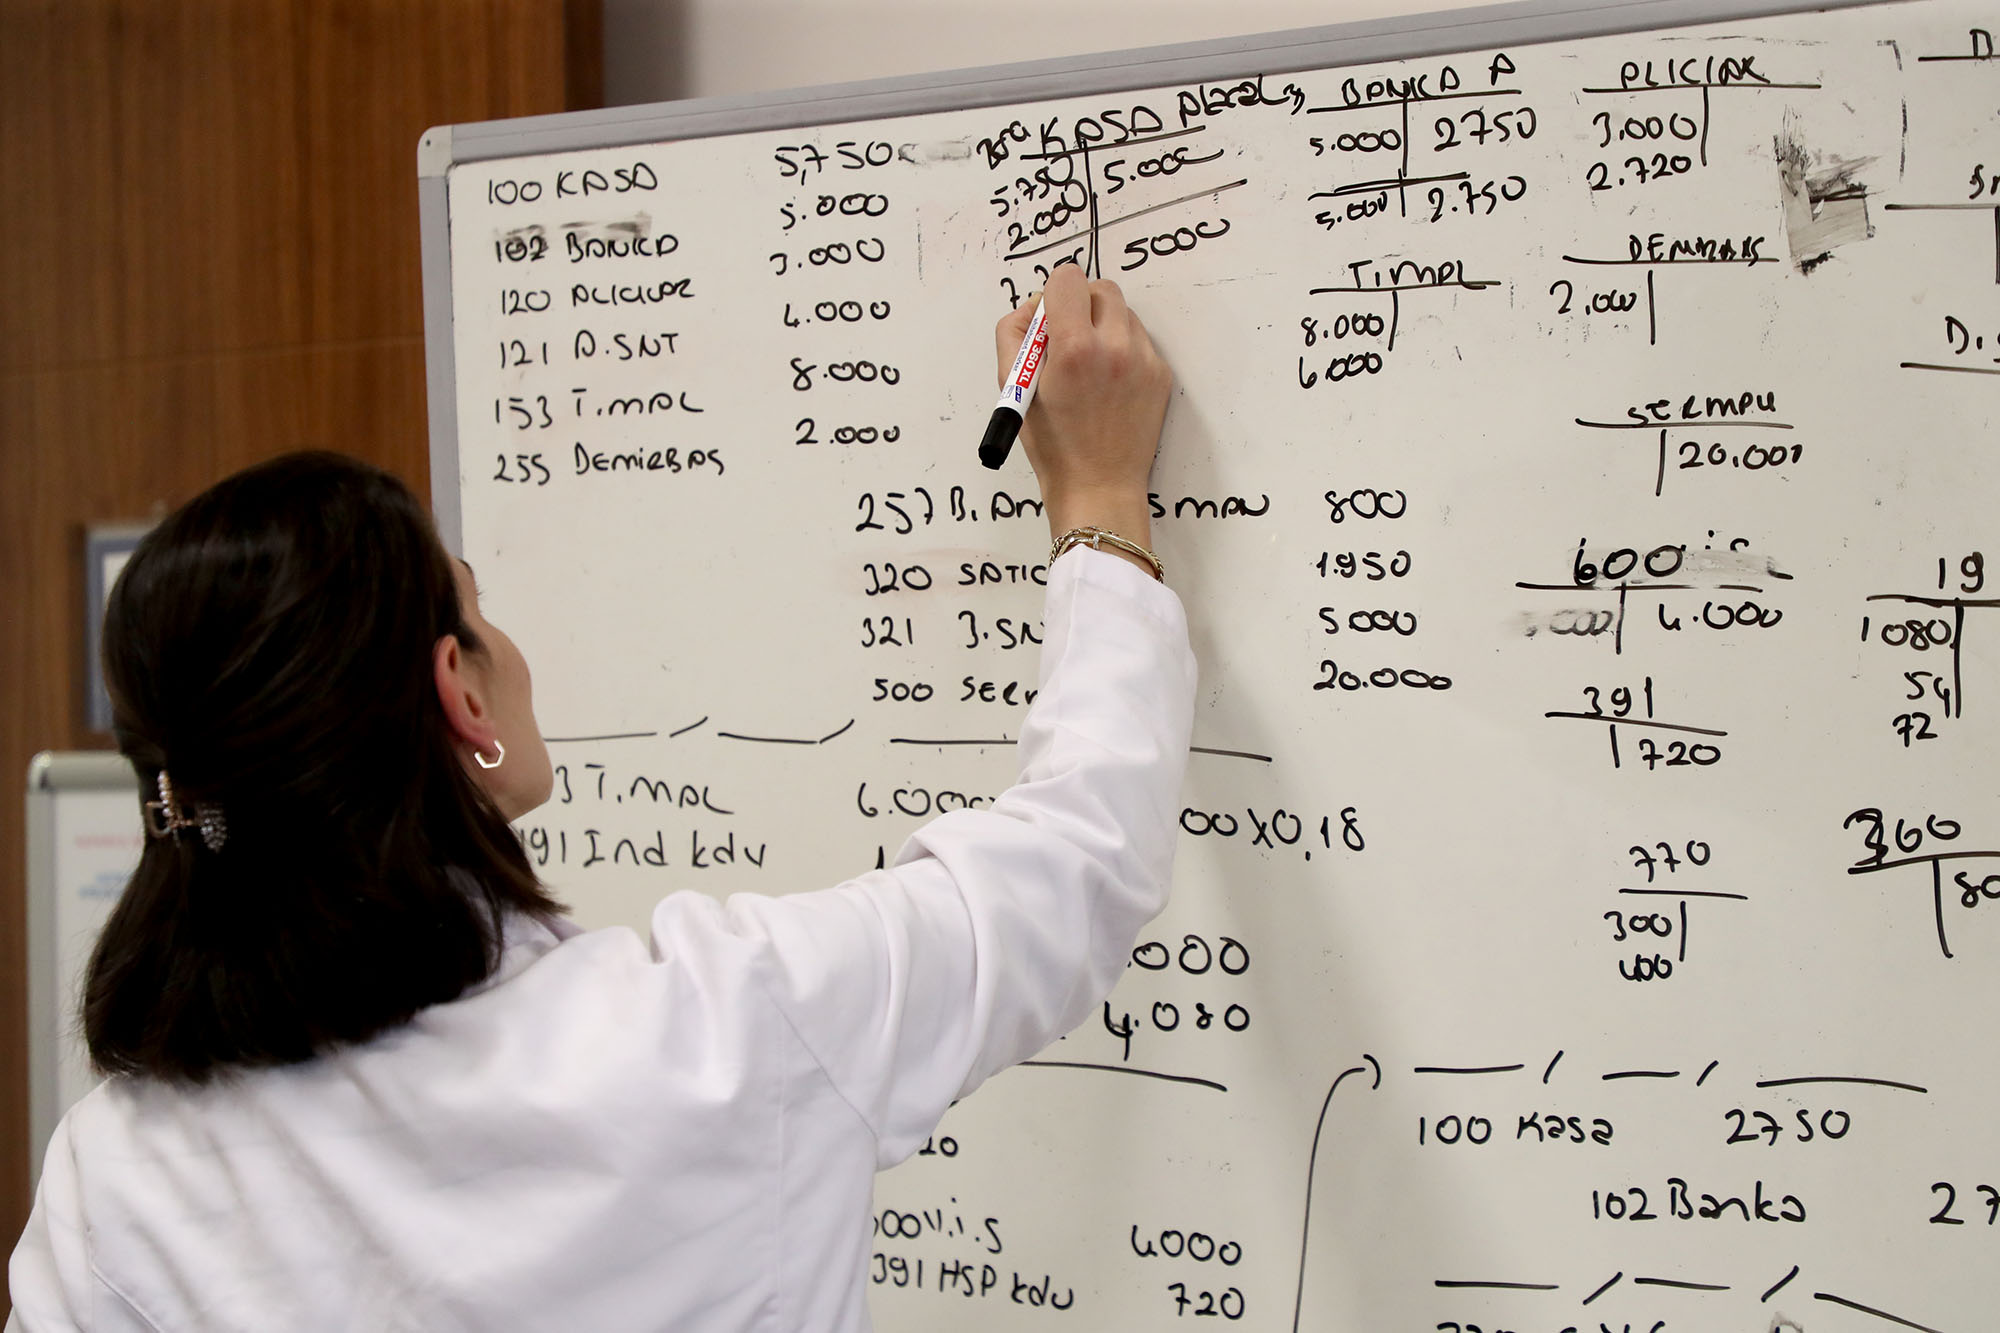 100 KASA 5,750
102 BANKA 5.000
120 ALICILAR 3.000
121 A.SNT 4.000
153 T.MAL 8.000
255 DEMİRBAŞ 2.000
257 B. AM SMAN 800
320 SATIC 1.950
321 B.SN 5000
500 SER 20.000
3 T.MAL 6.000
191 Ind kdv 00X0,18
.000
4.080
20
600 Y.i.S 4000
391 HSP kdv 720
KASA
5.750 5.000
2.000
5000
BANKA A
5.000 2750
5.000 2.750
T.MAL
8.000
6.000
ALICILAR
3.000
2.720
DEMİRBAŞ
2.000
SERMAY
20.000
600
4.000
391
720
770
300
400
D
D.
19
1080
54
72
360
80
100 Kasa 2750
102 Banka 27
edding 360 XL